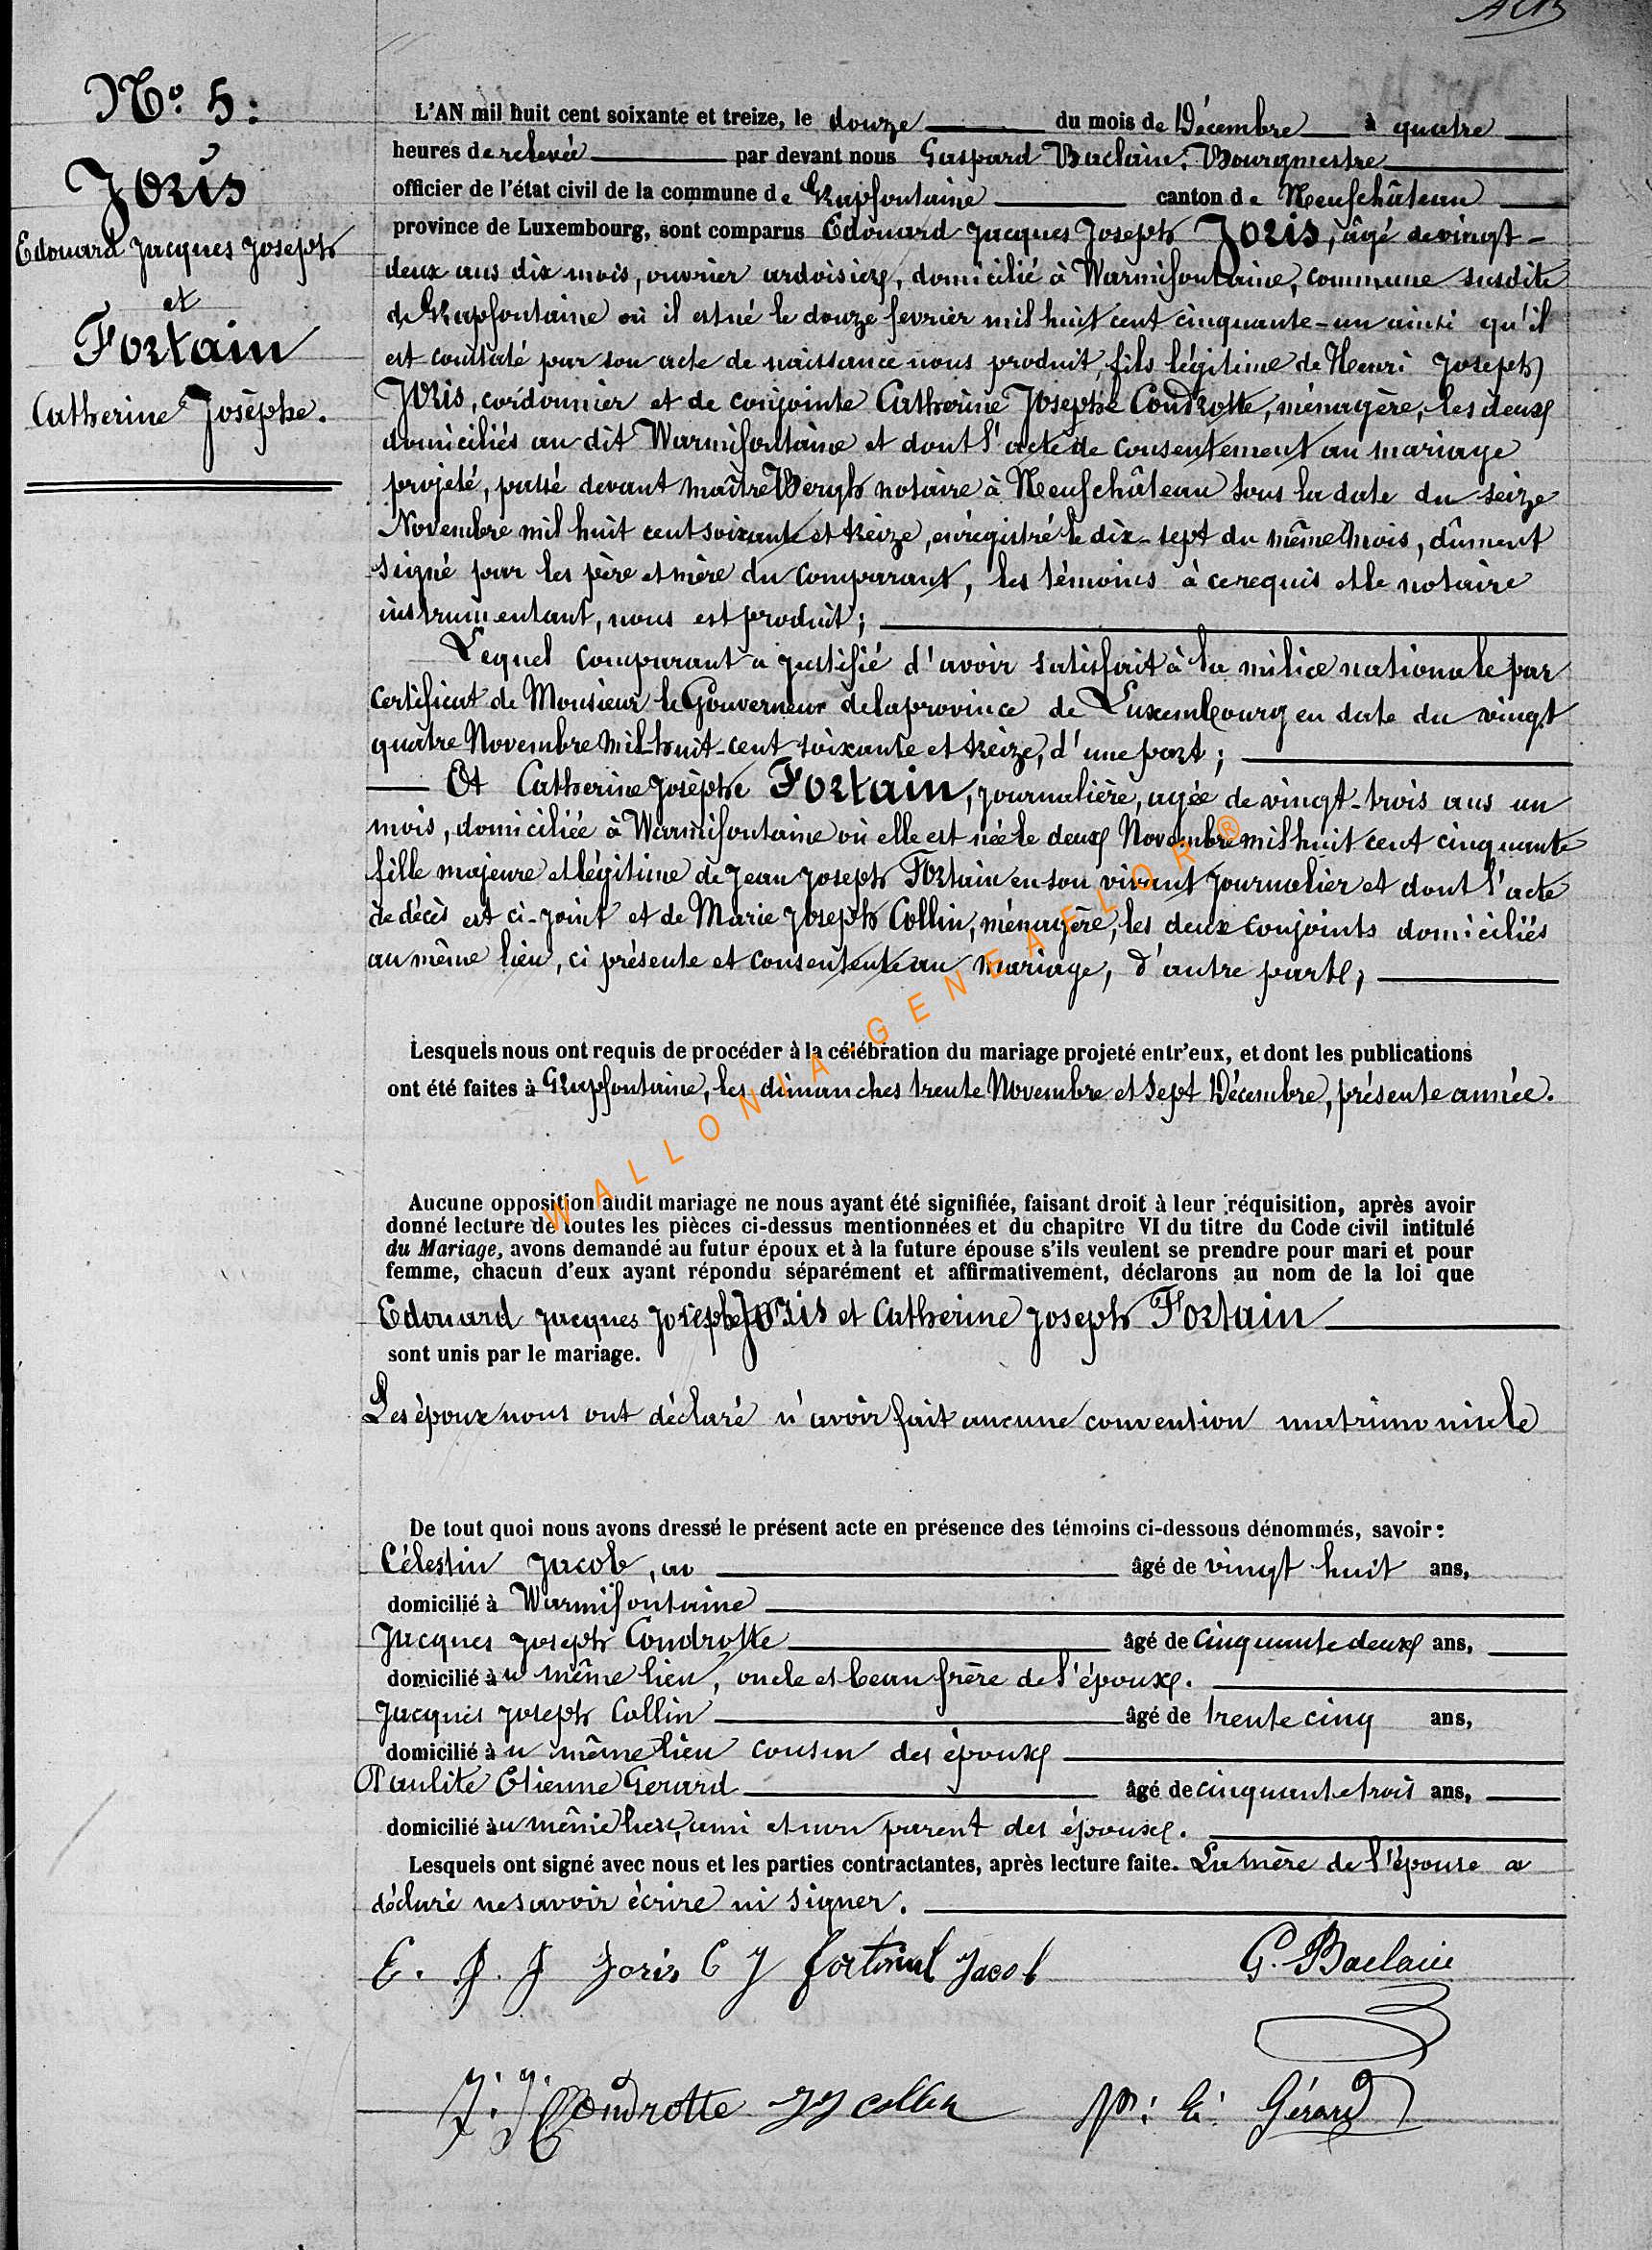 N.o 5:
Joris
Edouard Jacques Joseph
et
Fortain
Catherine Josèphe.
L'AN mil huit cent soixante et treize, le douze du mois de Décembre à quatre
heures de relevée par devant nous Gaspard Baclain, Bourgmestre
officier de l'état civil de la commune de Grapfontaine canton de Neufchâteau
province de Luxembourg, sont comparus Edouard Jacques Joseph Joris, âgé de vingt-
deux ans dix mois, ouvrier ardoisier, domicilié à Warmifontaine, commune susdite
de Grapfontaine où il est né le douze fevrier mil huit cent cinquante-un ainsi qu'il
est constaté par son acte de naissance nous produit, fils légitime de Henri Joseph
Joris, cordonnier et de conjointe Catherine Josephe Condrotte, ménagère, les deux
domiciliés au dit Warmifontaine et dont l'acte de consentement au mariage
projeté, passé devant maître Bergh notaire à Neufchâteau sous la date du seize
Novembre mil huit cent soixante et treize, enrégistré le dix-sept du même mois, dûment
signé par les père et mère du comparant, les témoins à ce requis et le notaire
instrumentant, nous est produit;
Lequel comparant a justifié d'avoir satisfait à la milice nationale par
certificat de Monsieur le Gouverneur de la province de Luxembourg en date du vingt
quatre Novembre mil-huit-cent soixante et treize, d'une part;
Et Catherine Josèphe Fortain, journalière, agée de vingt-trois ans un
mois, domiciliée à Warmifontaine où elle est née le deux Novembre mil huit cent cinquante
fille majeure et légitime de Jean Joseph Fortain en son vivant journalier et dont l'acte
de décès est ci-joint et de Marie Joseph Collin, ménagère, les deux conjoints domiciliés
au même lieu, ci présente et consentente au mariage, d'autre part,
Lesquels nous ont requis de procéder à la célébration du mariage projeté entr'eux, et dont les publications
ont été faites à Grapfontaine, les dimanches trente Novembre et sept Décembre, présente année.
WALLONIA-GENEAELOR®
Aucune opposition audit mariage ne nous ayant été signifiée, faisant droit à leur réquisition, après avoir
donné lecture de toutes les pièces ci-dessus mentionnées et du chapitre VI du titre du Code civil intitulé
du Mariage, avons demandé au futur époux et à la future épouse s'ils veulent se prendre pour mari et pour
femme, chacun d'eux ayant répondu séparément et affirmativement, déclarons au nom de la loi que
Edouard Jacques Josephe Joris et Catherine Joseph Fortain
sont unis par le mariage.
Les époux nous ont déclaré n'avoir fait aucune convention matrimoniale
De tout quoi nous avons dressé le présent acte en présence des témoins ci-dessous dénommés, savoir:
Célestin Jacob, âgé de vingt huit ans,
domicilié à Warmifontaine
Jacques Joseph Condrotte âgé de cinquante deux ans,
domicilié au même lieu, oncle et beau frère de l'époux.
Jacques Joseph Collin âgé de trente cinq ans,
domicilié au même lieu cousin des époux
Etienne Gerard âgé de cinquante trois ans,
domicilié au même lieu, ami et non parent des époux.
Lesquels ont signé avec nous et les parties contractantes, après lecture faite. La mère de l'épouse a
déclaré ne savoir écrire ni signer.
E. J. J Joris C J Jacob G. Baclain
J. J. Condrotte JJ Collin Gérard